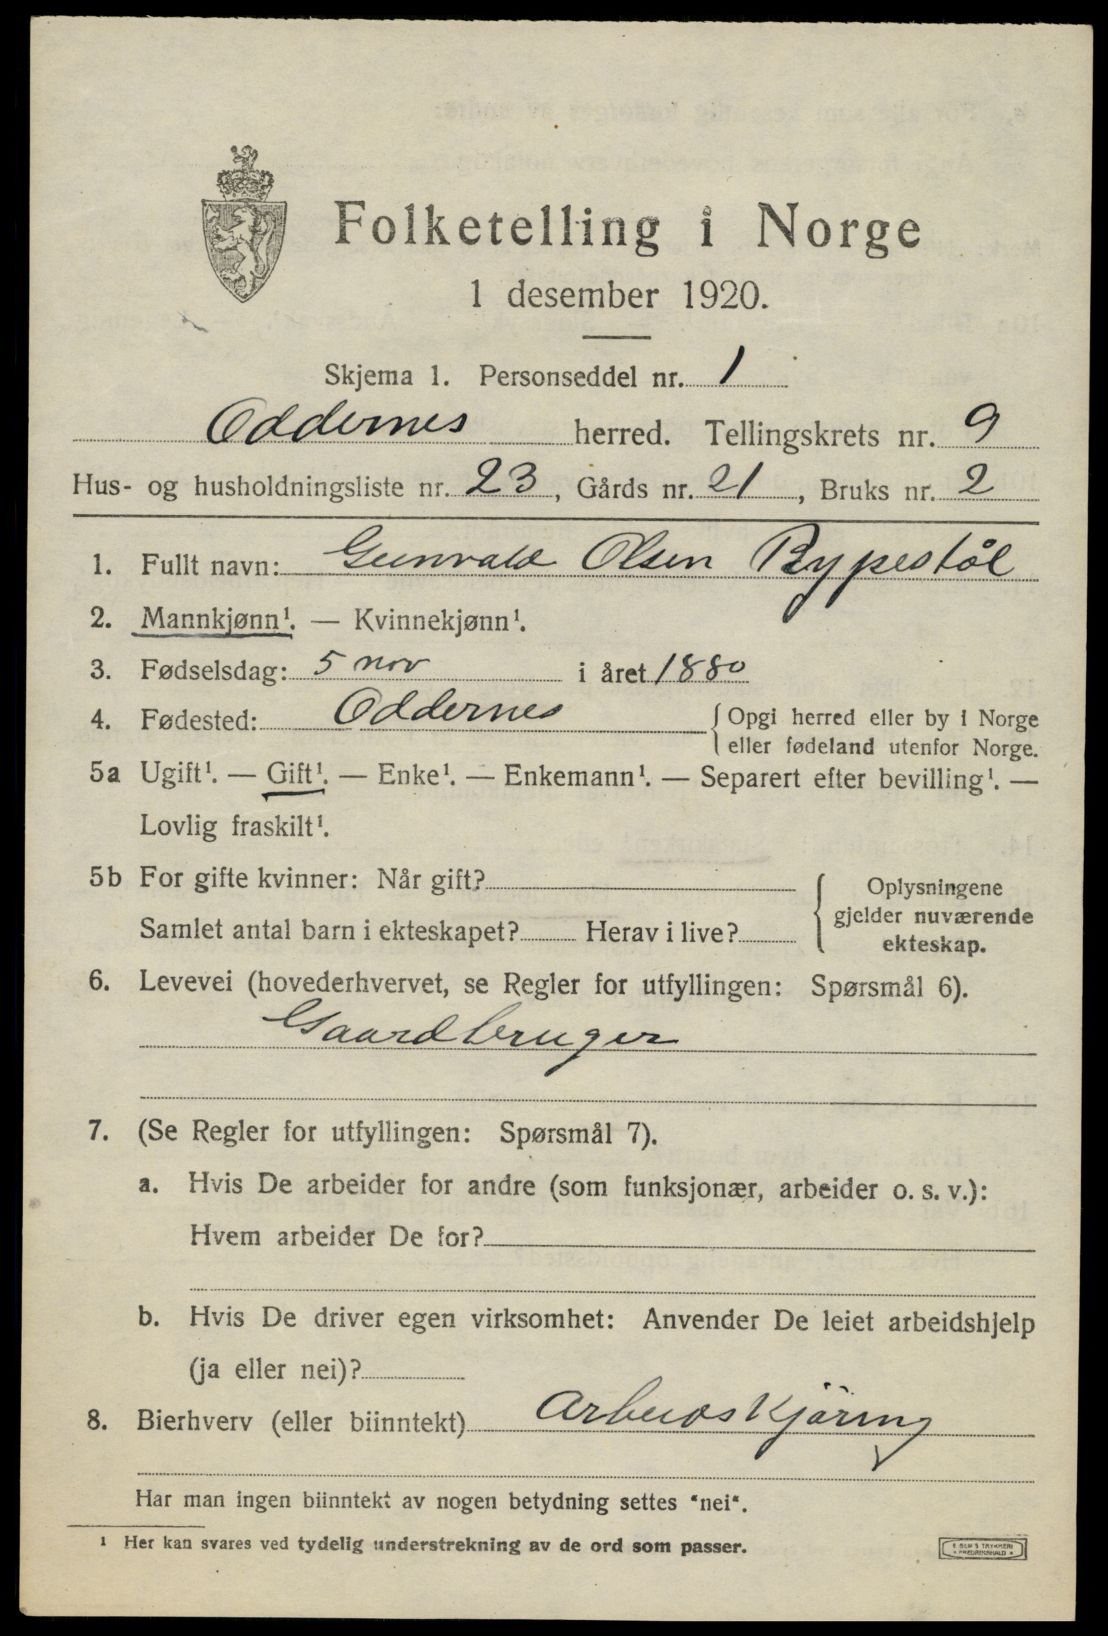 Folketelling i Norge
1 desember 1920.
Skjema 1. Personseddel nr. 1
Oddernes herred. Tellingskrets nr. 9
Hus- og husholdningsliste nr. 23, Gårds nr. 21, Bruks nr. 2
1. Fullt navn: Gunvald Olsen Rypestøl
2. Mannkjønn¹. — Kvinnekjønn¹.
3. Fødselsdag: 5 nov i året 1880
4. Fødested: Oddernes {Opgi herred eller by i Norge
eller fødeland utenfor Norge.
5a Ugift¹. — Gift¹. — Enke¹. — Enkemann¹. — Separert efter bevilling¹. —
Lovlig fraskilt¹.
5b For gifte kvinner: Når gift? { Oplysningene
gjelder nuværende
Samlet antal barn i ekteskapet? Herav i live?
ekteskap.
6. Levevei (hovederhvervet, se Regler for utfyllingen: Spørsmål 6).
Gaardbruger
7. (Se Regler for utfyllingen: Spørsmål 7).
a. Hvis De arbeider for andre (som funksjonær, arbeider o. s. v.):
Hvem arbeider De for?
b. Hvis De driver egen virksomhet: Anvender De leiet arbeidshjelp
(ja eller nei)?
8. Bierhverv (eller biinntekt) Arbeids Kjøring
Har man ingen biinntekt av nogen betydning settes "nei".
¹ Her kan svares ved tydelig understrekning av de ord som passer.